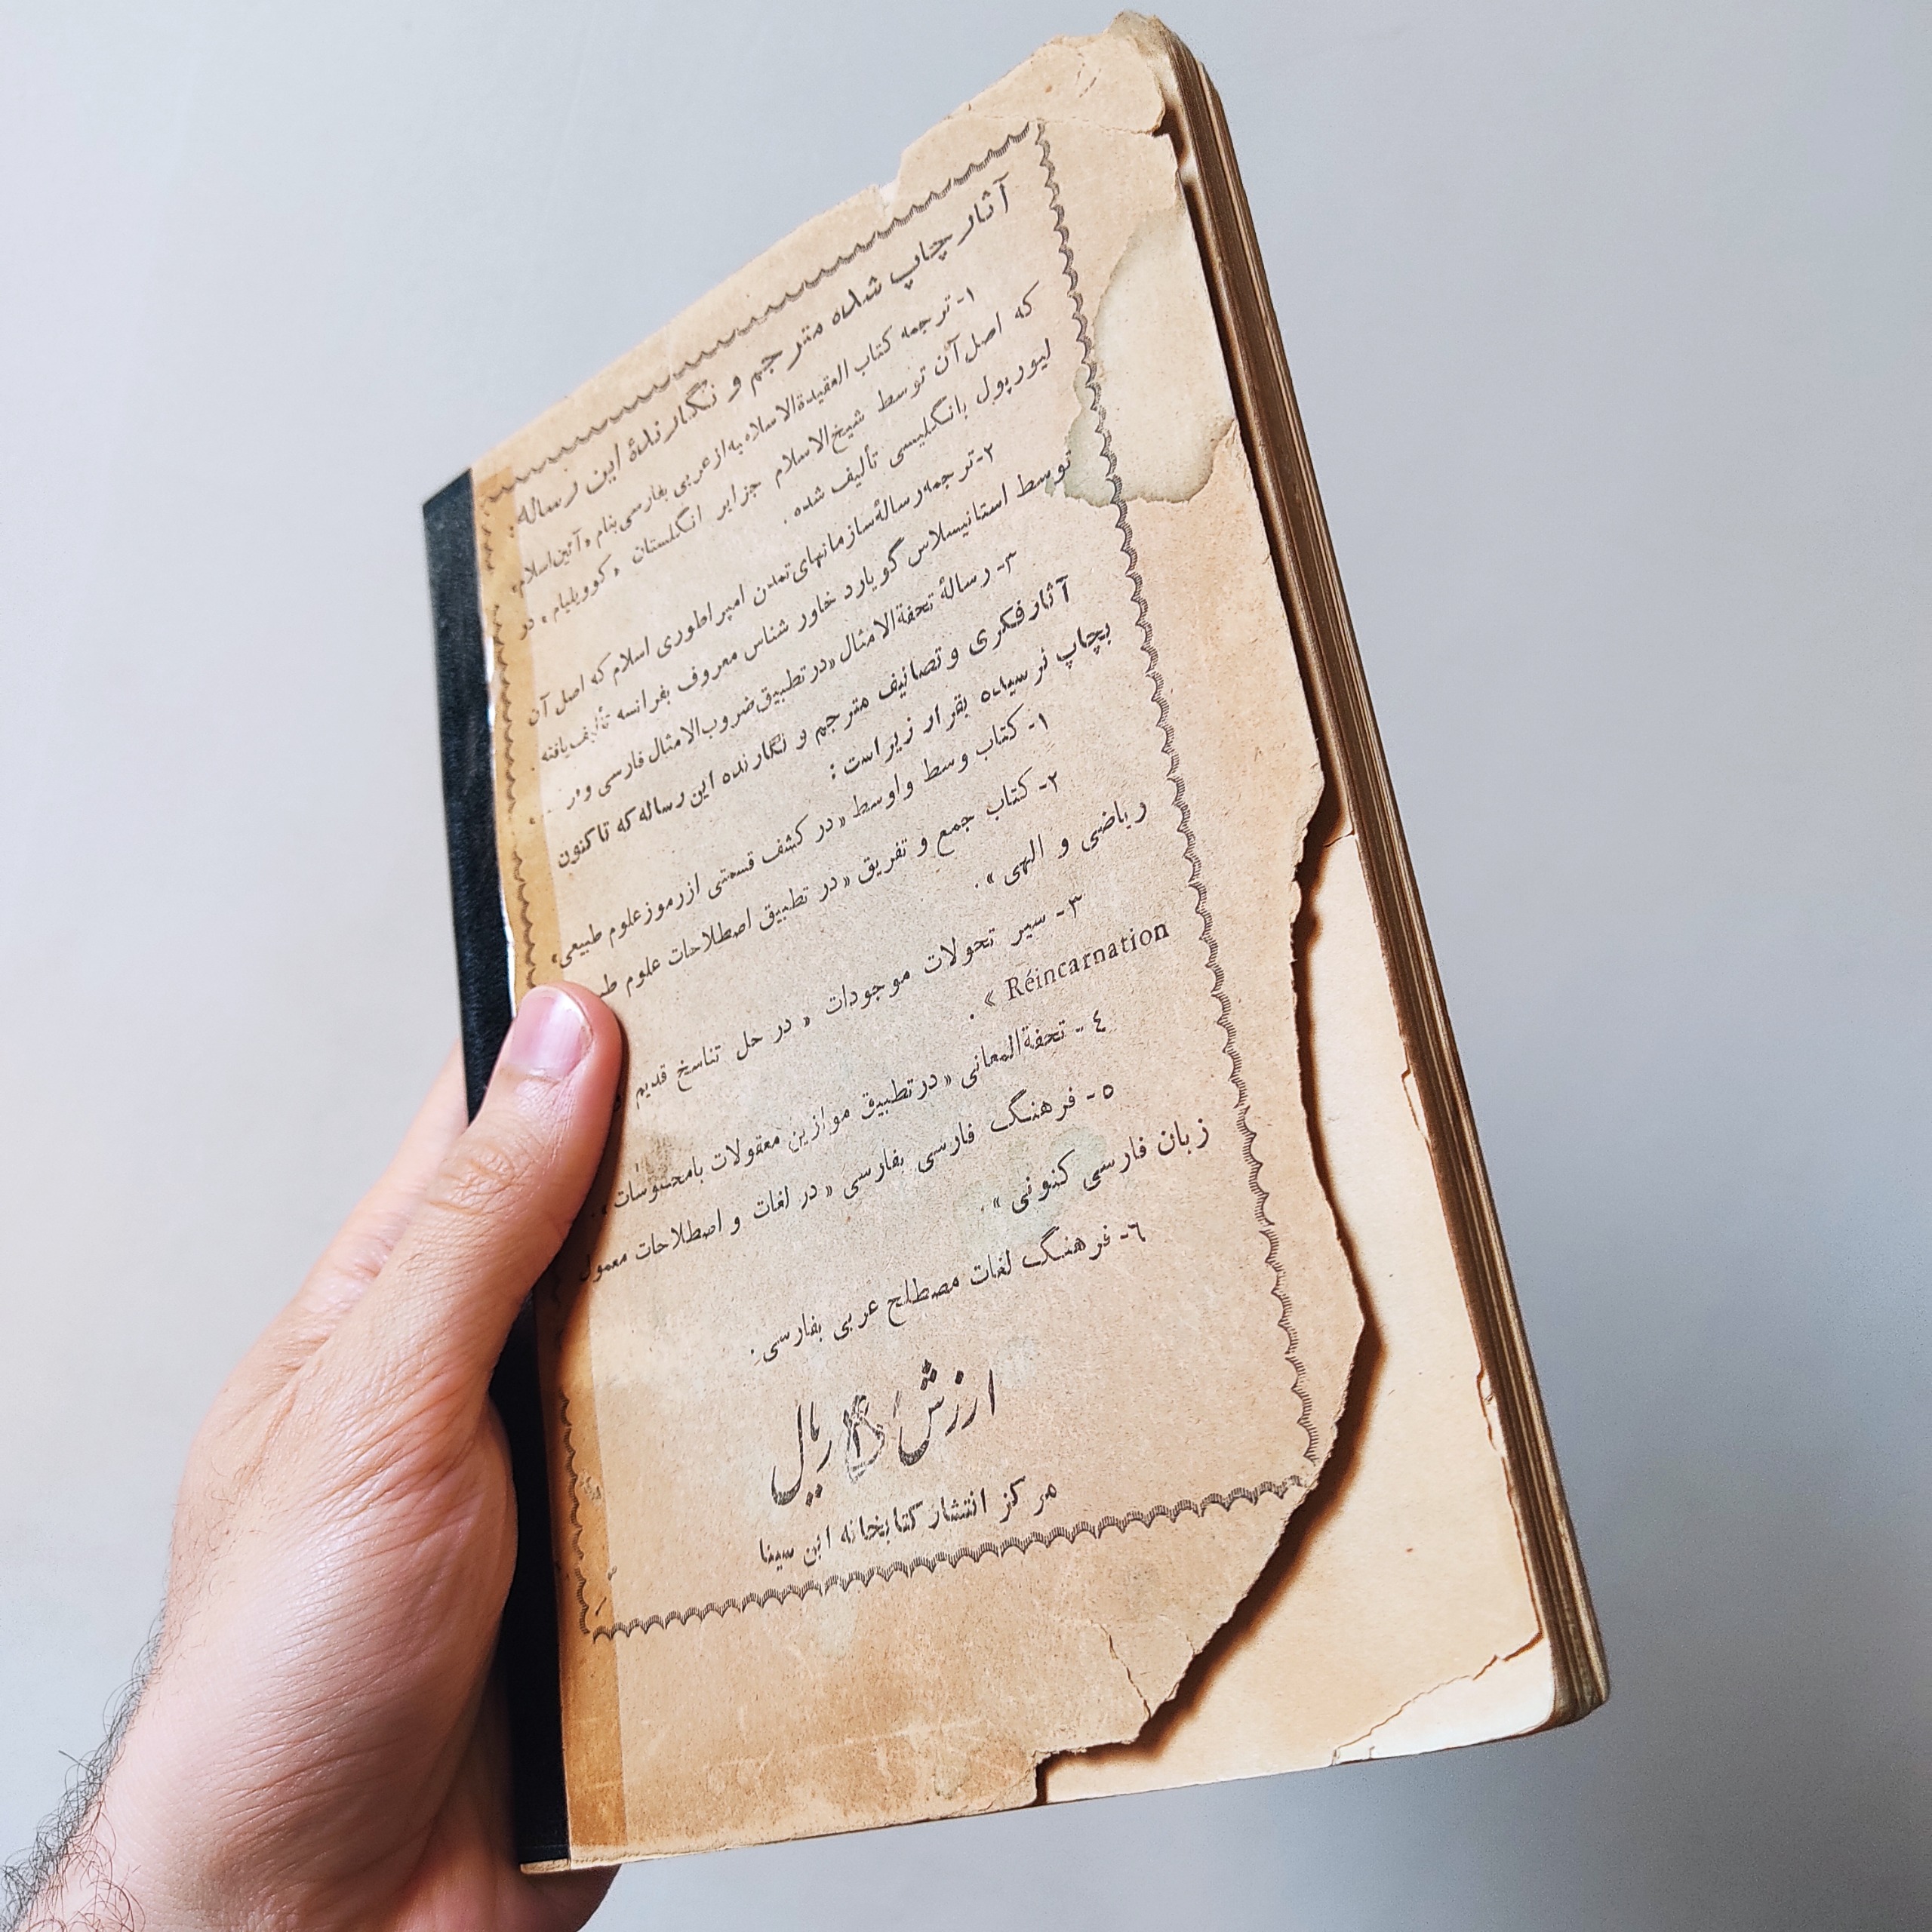 آثار چاپ شده مترجم و نگارندهٔ این رساله:
۱- ترجمه کتاب العقیدةالاسلامیه از عربی بفارسی بنام «آئین اسلام»
که اصل آن توسط شیخ‌الاسلام جزایر انگلستان «کوویلیام» در
لیورپول بانگلیسی تألیف شده.
۲- ترجمه رسالهٔ سازمانهای تمدن امپراطوری اسلام که اصل آن
توسط استانیسلاس گویارد خاور شناس معروف بفرانسه تألیف یافته.
۳- رسالهٔ تحفةالامثال «در تطبیق ضروب‌الامثال فارسی و
آثار فکری و تصانیف مترجم و نگارنده این رساله که تاکنون
بچاپ نرسیده بقرار زیر است:
۱- کتاب وسط و اوسط «در کشف قسمتی از رموز علوم طبیعی»
۲- کتاب جمع و تفریق «در تطبیق اصطلاحات علوم
ریاضی و الهی».
۳- سیر تحولات موجودات «در حل تناسخ قدیم
Réincarnation».
٤- تحفةالمعانی «در تطبیق موازین معقولات بامحسوسات».
٥- فرهنگ فارسی بفارسی «در لغات و اصطلاحات معمول
زبان فارسی کنونی».
٦- فرهنگ لغات مصطلح عربی بفارسی.
ارزش ریال
مرکز انتشار کتابخانه ابن سینا